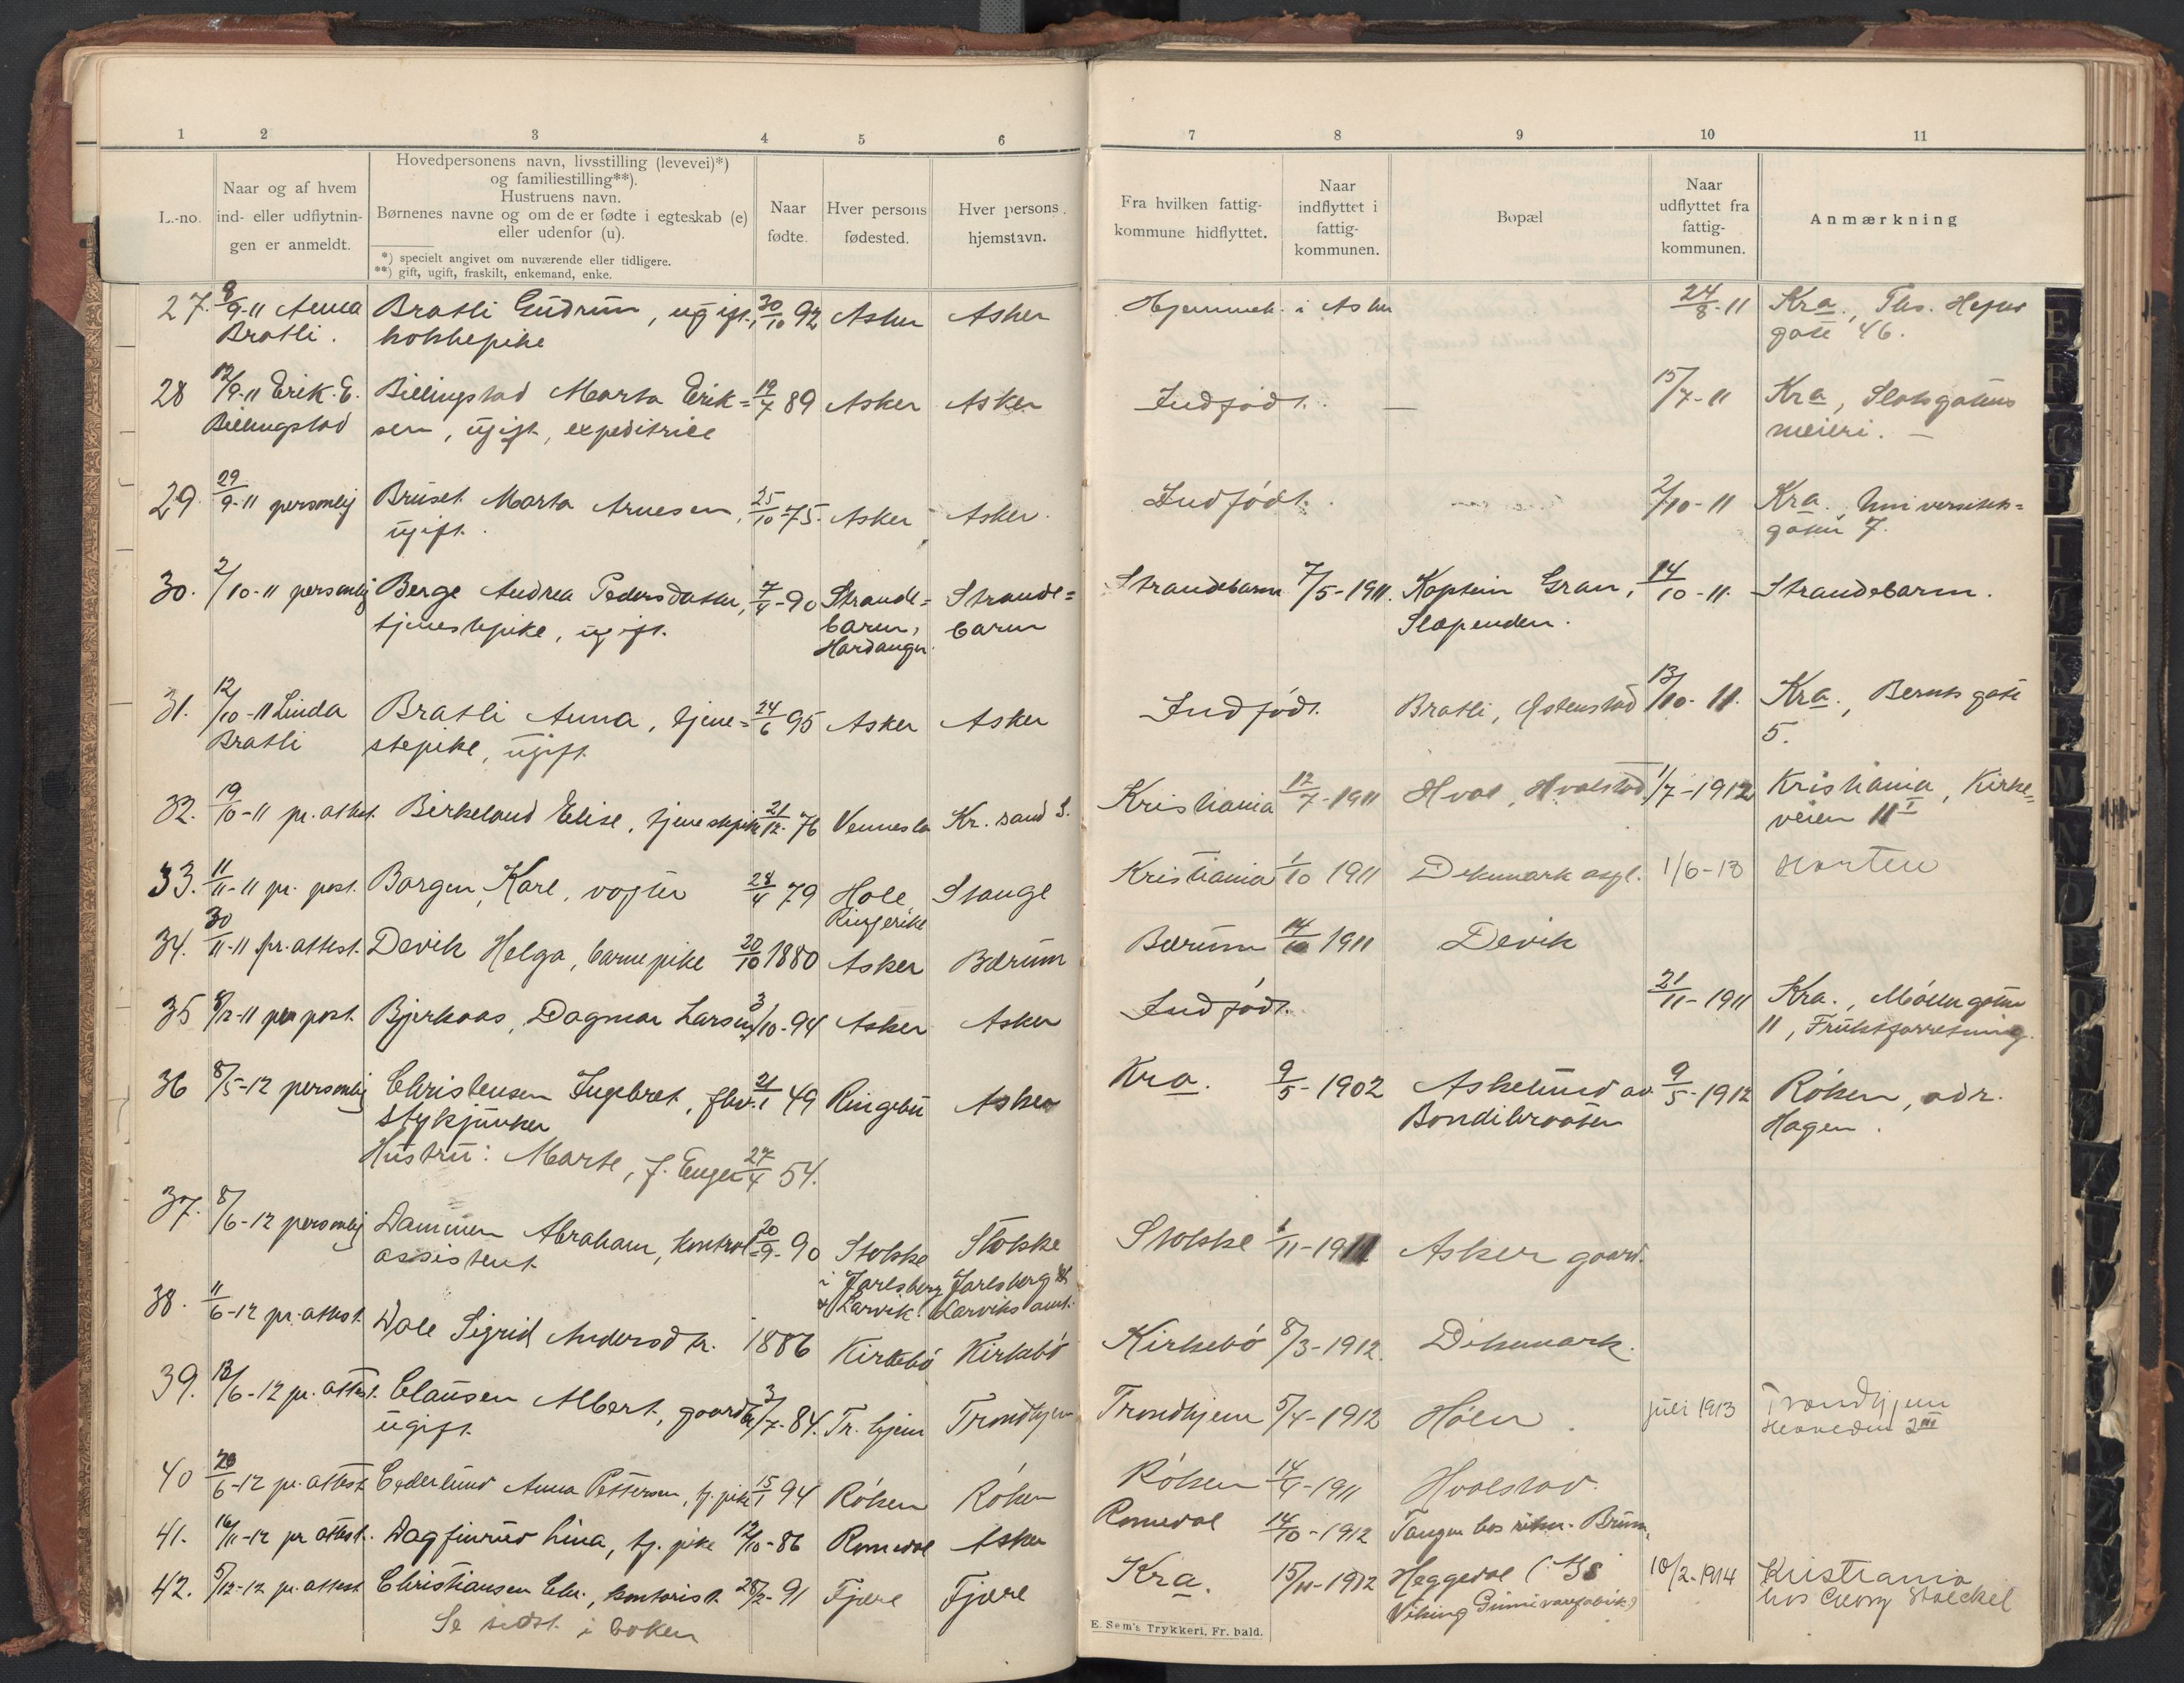 1 2 3 4 5 6 7 8 9 10 11
L.-no.
Naar og af hvem
ind- eller udflytnin-
gen er anmeldt.
Hovedpersonens navn, livsstilling (levevei)*)
og familiestilling**).
Hustruens navn.
Børnenes navne og om de er fødte i egteskab (e)
eller udenfor (u).
*) specielt angivet om nuværende eller tidligere.
**) gift, ugift, fraskilt, enkemand, enke.
Naar
fødte.
Hver persons
fødested.
Hver persons
hjemstavn.
Fra hvilken fattig-
kommune hidflyttet.
Naar
indflyttet i
fattig-
kommunen.
Bopæl
Naar
udflyttet fra
fattig-
kommunen.
Anmærkning
27. 8/9-11 Anna Bratli Gudrun, ugift, 30/10 92 Asker Asker Hjemmeh. i Asker 24/8-11 Kra., Ths. Heftes
Bratli. kokkepike gate 46.
28 12/9-11 Erik E. Billingstad Marta Erik= 19/7 89 Asker Asker Indfødt. — 15/7-11 Kra, Slotsgatens
Billingstad sen, ugift, expeditrice meieri. —
29. 29/9-11 personlig Bruset Marta Arnesen, 25/10 75. Asker Asker. Indfødt. 2/10-11 Kra. Universitets=
ugift. gaten 7.
30. 2/10-11 personlig Berge Andrea Pedersdatter, 7/4-90 Strande= Strande= Strandebarm 7/5-1911. Kaptein Gran, 14/10-11. Strandebarm.
tjenestepike, ugift. barm, barm Slæpenden.
Hardanger.
31. 12/10-11 Linda Bratli Anna, tjene= 24/6 95 Asker Asker Indfødt. Bratli, Østenstad 13/10-11. Kra., Bernts gate
Bratli stepike, ugift 5.
32. 19/10-11 pr. attest. Birkeland Elise, tjenestepike 21/12-76 Vennesla Kr.sand S. Kristiania 12/7-1911 Hval, Hvalstad 1/7-1912 Kristiania, Kirke=
veien 11 I
33. 11/11-11 pr. post. Borgen, Karl, vogter 28/4 79 Hole, Stange Kristiania 1/10 1911 Dikemark asyl. 1/6-13 Horten
Ringerike
34. 30/11-11 pr. attest. Devik Helga, barnepike 20/10 1880 Asker Bærum Bærum 14/10 1911 Devik
35 8/12-11 per post. Bjerkaas, Dagmar Larsen 3/10-94 Asker Asker Indfødt. 21/11-1911 Kra., Møllergaten
11, Fruktforretning.
36 8/5-12 personlig Christensen Ingebret, fhv. 21/1 49 Ringebu Asker Kra. 9/5-1902 Askelund av 9/5-1912 Røken, adr.
stykjunker Bondibraaten Hagen.
Hustru: Marte, f. Enger 27/4 54.
37. 8/6-12 personlig Dammen Abraham, kontrol= 20/9-90 Stokke Stokke Stokke 1/11-1911 Asker gaard.
assistent i Jarlsberg Jarlsberg &
& Larvik. Larviks amt.
38. 11/6-12 pr. attest. Dale Sigrid Andersdtr. 1886 Kirkebø Kirkebø Kirkebø 8/3-1912. Dikemark.
39. 13/6-12 pr. attest. Clausen Albert, 3/7-84. Tr.hjem Trondhjem Trondhjem 5/4-1912 Hølen. juli 1913 Trondhjem
ugift
40 20/6-12 pr. attest Cederlund Anna Pettersen, tj. pike 15/1 94 Røken Røken Røken 14/4-1911 Hvalstad.
41. 16/11-12 pr attest. Dagfinrud Lina, tj. pike 12/10-86 Romedal Asker Romedal 14/10-1912 Tangen hos
42. 5/12-12 pr. attest Christiansen Chr., kontorist. 28/2-91 Fjære Fjære Kra. 15/11-1912 Heggedal (A/S 10/2-1914 Kristiania
Se sidst i boken Viking Gummivarefabrik) hos Georg Stoeckel
E. Sem's Trykkeri, Fr. hald.
E F G H I J K L M N O P Q R